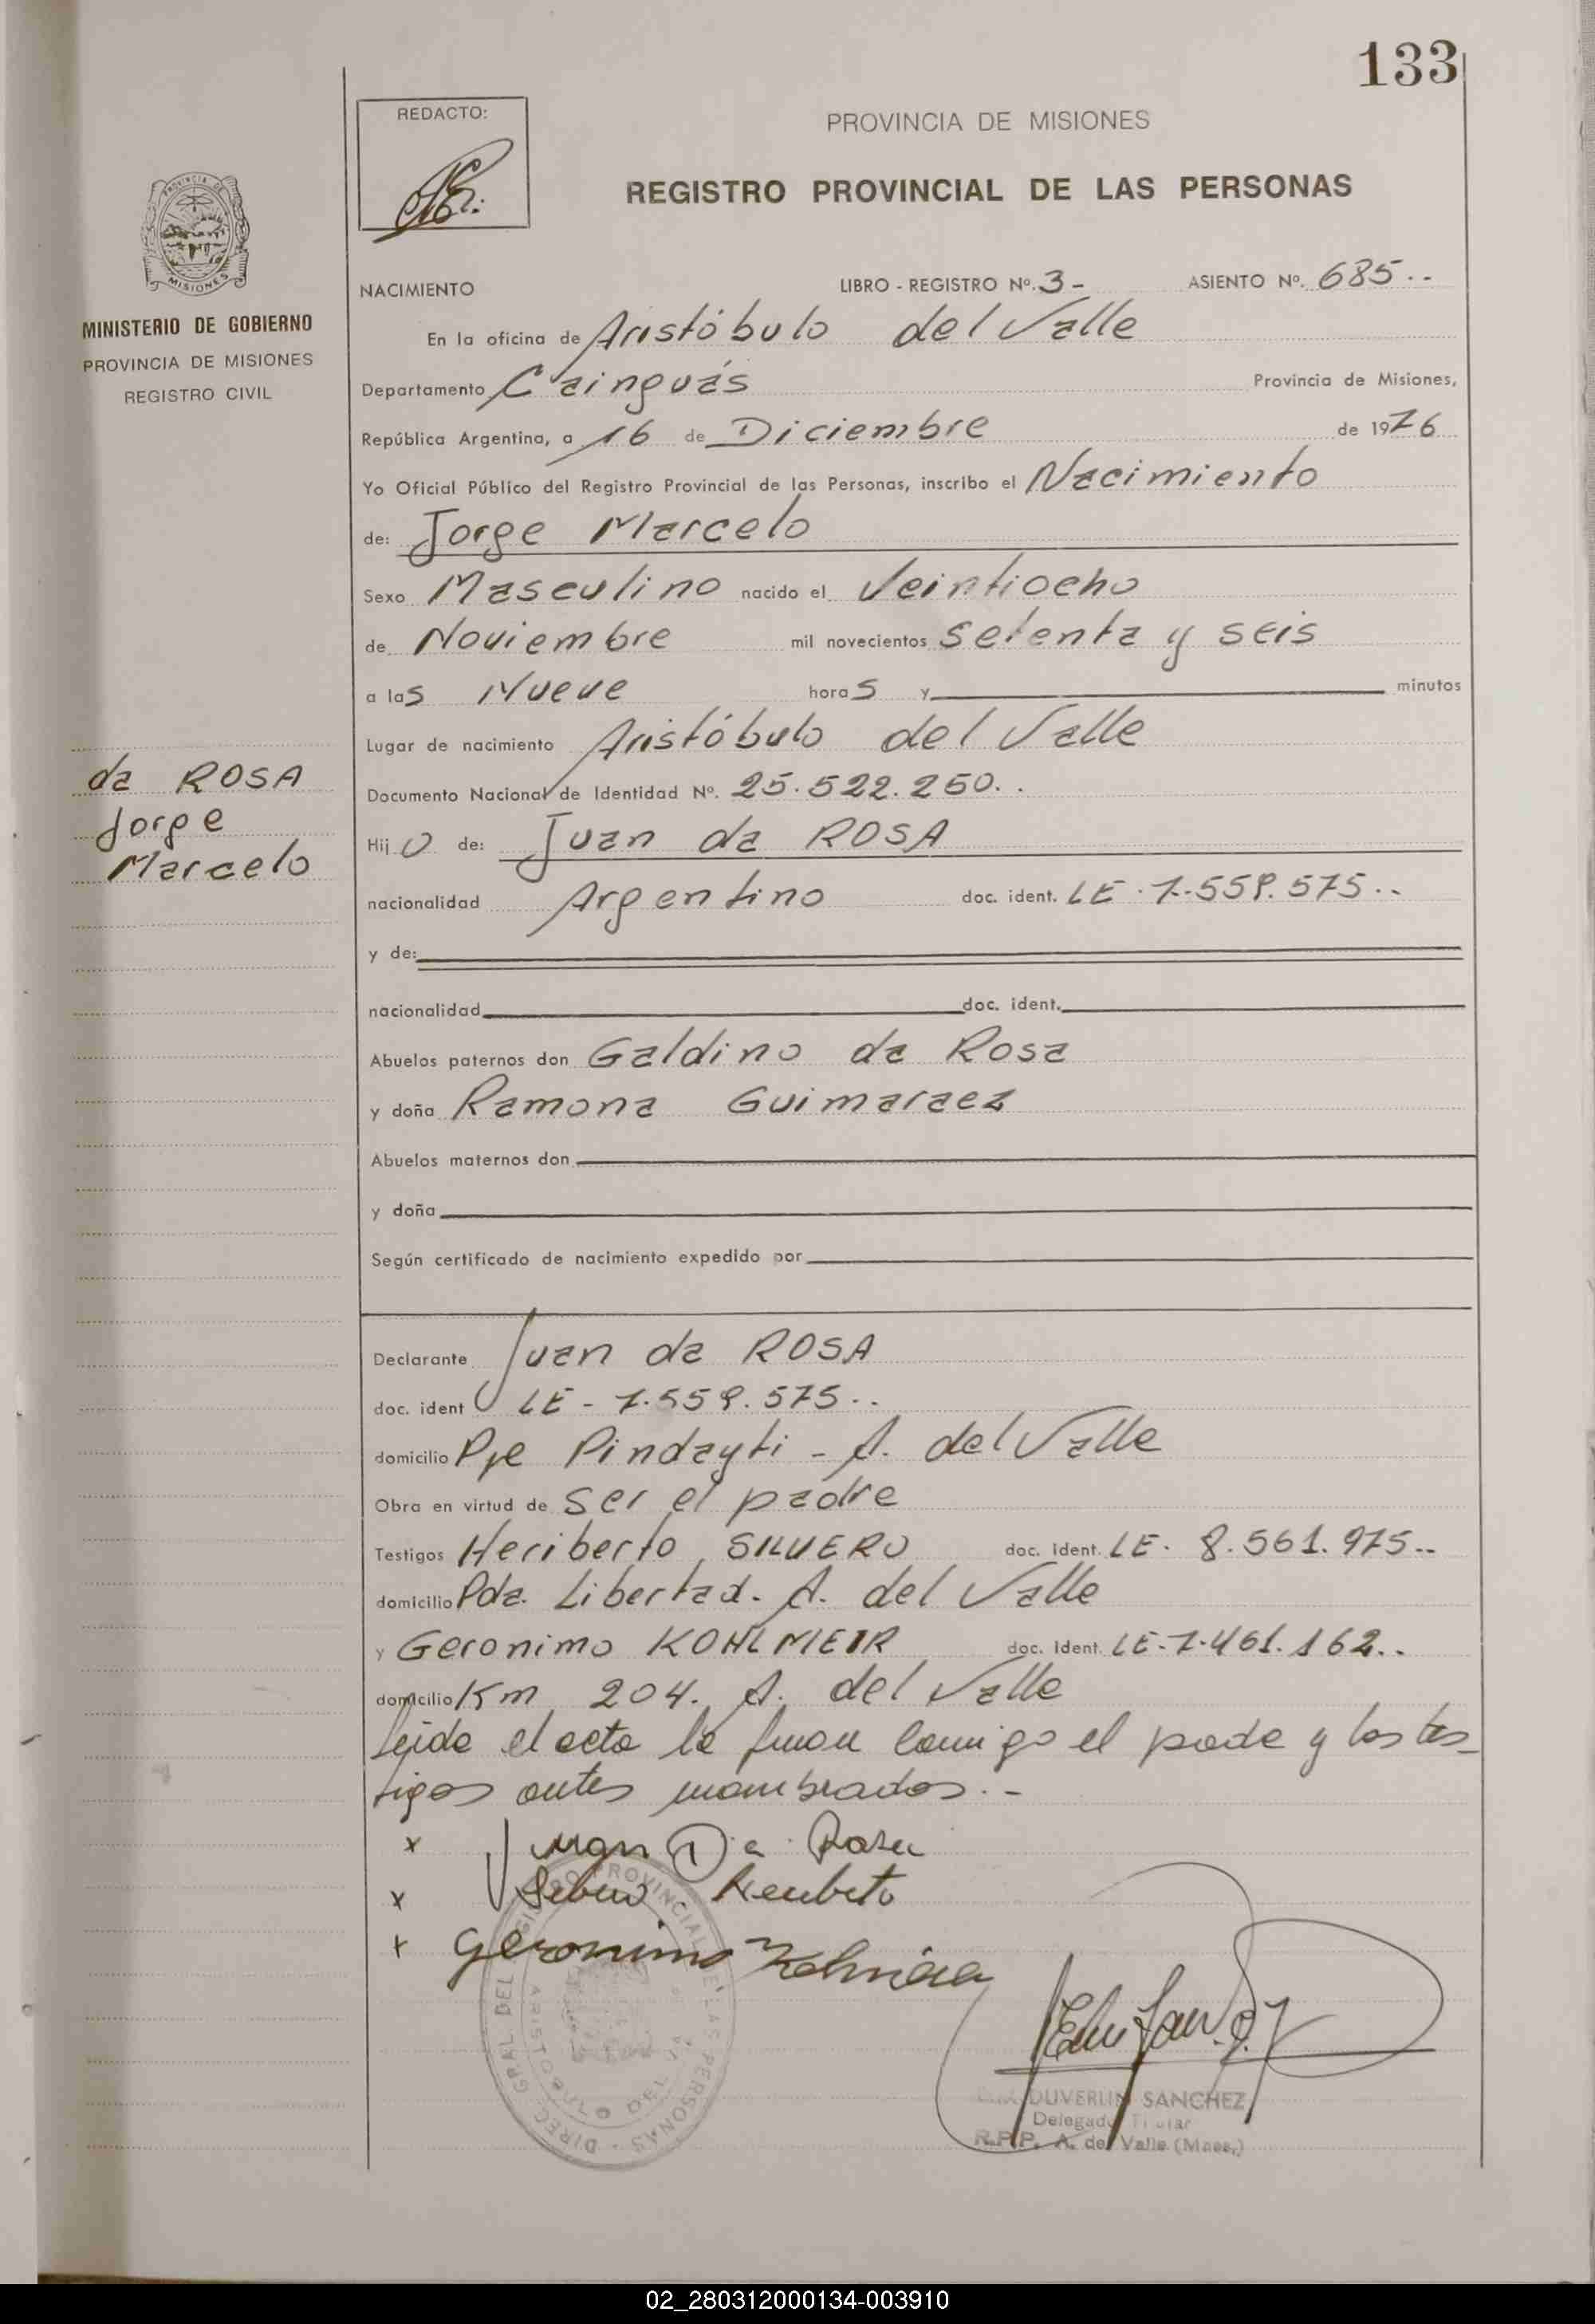 133
REDACTO:
PROVINCIA DE MISIONES
REGISTRO PROVINCIAL DE LAS PERSONAS
PROVINCIA DE
MISIONES
MINISTERIO DE GOBIERNO
PROVINCIA DE MISIONES
REGISTRO CIVIL
NACIMIENTO LIBRO - REGISTRO Nº. 3 - ASIENTO Nº. 685..
En la oficina de Aristóbulo del Valle
Departamento Cainguás Provincia de Misiones,
República Argentina, a 16 de Diciembre de 1976
Yo Oficial Público del Registro Provincial de las Personas, inscribo el Nacimiento
de: Jorge Marcelo
Sexo Masculino nacido el Veintiocho
de Noviembre mil novecientos setenta y seis
a las Nueve horas y minutos
Lugar de nacimiento Aristóbulo del Valle
Documento Nacional de Identidad Nº. 25.522.250..
da ROSA
Jorge
Marcelo
Hijo de: Juan da ROSA
nacionalidad Argentino doc. ident. LE. 7.559.575..
y de:
nacionalidad doc. ident.
Abuelos paternos don Galdino da Rosa
y doña Ramona Guimaraez
Abuelos maternos don
y doña
Según certificado de nacimiento expedido por
Declarante Juan da ROSA
doc. ident LE - 7.559.575..
domicilio Pje Pindayti - A. del Valle
Obra en virtud de ser el padre
Testigos Heriberto SILVERO doc. ident. LE. 8.561.975..
domicilio Pda. Libertad. A. del Valle
y Geronimo KOHLMEIR doc. ident. LE. 7.461.162..
domicilio Km 204. A. del Valle
Leida el acta la firman conmigo el padre y los tes-
tigos antes nombrados.-
x Juan Da Rosa
x Silvero Heriberto
x Geronimo
DIREC. GRAL. DEL REGISTRO PROVINCIAL DE LAS PERSONAS
ARISTOBULO DEL VALLE
DUVERLIN SANCHEZ
Delegado Titular
R.P.P. A. del Valle (Mnes.)
02_280312000134-003910